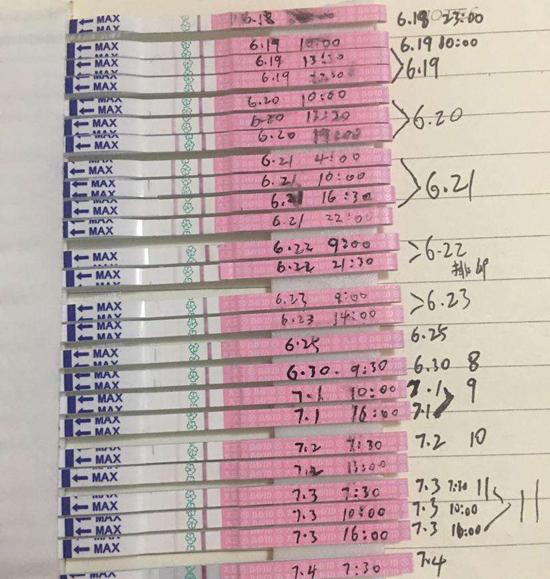 MAX 6.18 6.18 23:00
MAX 6.19 10:00 6.19 10:00
MAX 6.19 6.19
MAX 6.19
MAX 6.20 10:00
MAX 6.20 13:30 6.20
MAX 6.20
MAX 6.21 4:00
MAX 6.21 10:00 6.21
MAX 6.21 16:30
MAX 6.21 22:00
MAX 6.22 9:00 6.22
MAX 6.22 21:30 排卵
MAX 6.23 9:00 6.23
MAX 6.23 14:00
MAX 6.25 6.25
MAX 6.30. 9:30 6.30 8
MAX 7.1 10:00 7.1 9
MAX 7.1 16:00 7.1
MAX 7.2 7:30 7.2 10
MAX 7.2 13:00
MAX 7.3 7:30 7.3 7:30 11
MAX 7.3 10:00 7.3 10:00 11
MAX 7.3 16:00 7.3 16:00
MAX
MAX 7.4 7:30 7.4